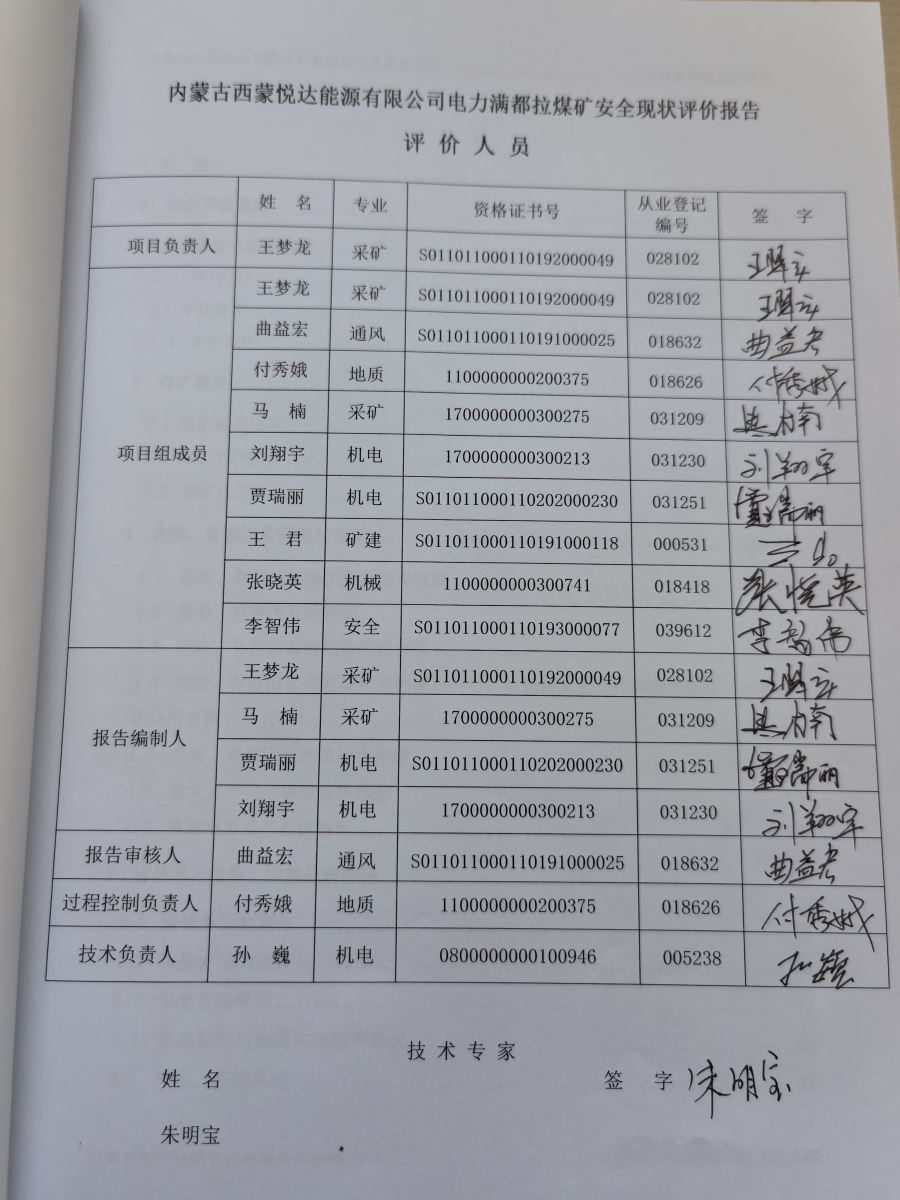 内蒙古西蒙悦达能源有限公司电力满都拉煤矿安全现状评价报告
评价人员
姓 名 专业 资格证书号 从业登记编号 签 字
项目负责人 王梦龙 采矿 S011011000110192000049 028102 王梦龙
项目组成员 王梦龙 采矿 S011011000110192000049 028102 王梦龙
曲益宏 通风 S011011000110191000025 018632 曲益宏
付秀娥 地质 1100000000200375 018626 付秀娥
马 楠 采矿 1700000000300275 031209 马楠
刘翔宇 机电 1700000000300213 031230 刘翔宇
贾瑞丽 机电 S011011000110202000230 031251 贾瑞丽
王 君 矿建 S011011000110191000118 000531 王君
张晓英 机械 1100000000300741 018418 张晓英
李智伟 安全 S011011000110193000077 039612 李智伟
报告编制人 王梦龙 采矿 S011011000110192000049 028102 王梦龙
马 楠 采矿 1700000000300275 031209 马楠
贾瑞丽 机电 S011011000110202000230 031251 贾瑞丽
刘翔宇 机电 1700000000300213 031230 刘翔宇
报告审核人 曲益宏 通风 S011011000110191000025 018632 曲益宏
过程控制负责人 付秀娥 地质 1100000000200375 018626 付秀娥
技术负责人 孙 巍 机电 0800000000100946 005238 孙巍
技术专家
姓 名 签 字 朱明宝
朱明宝